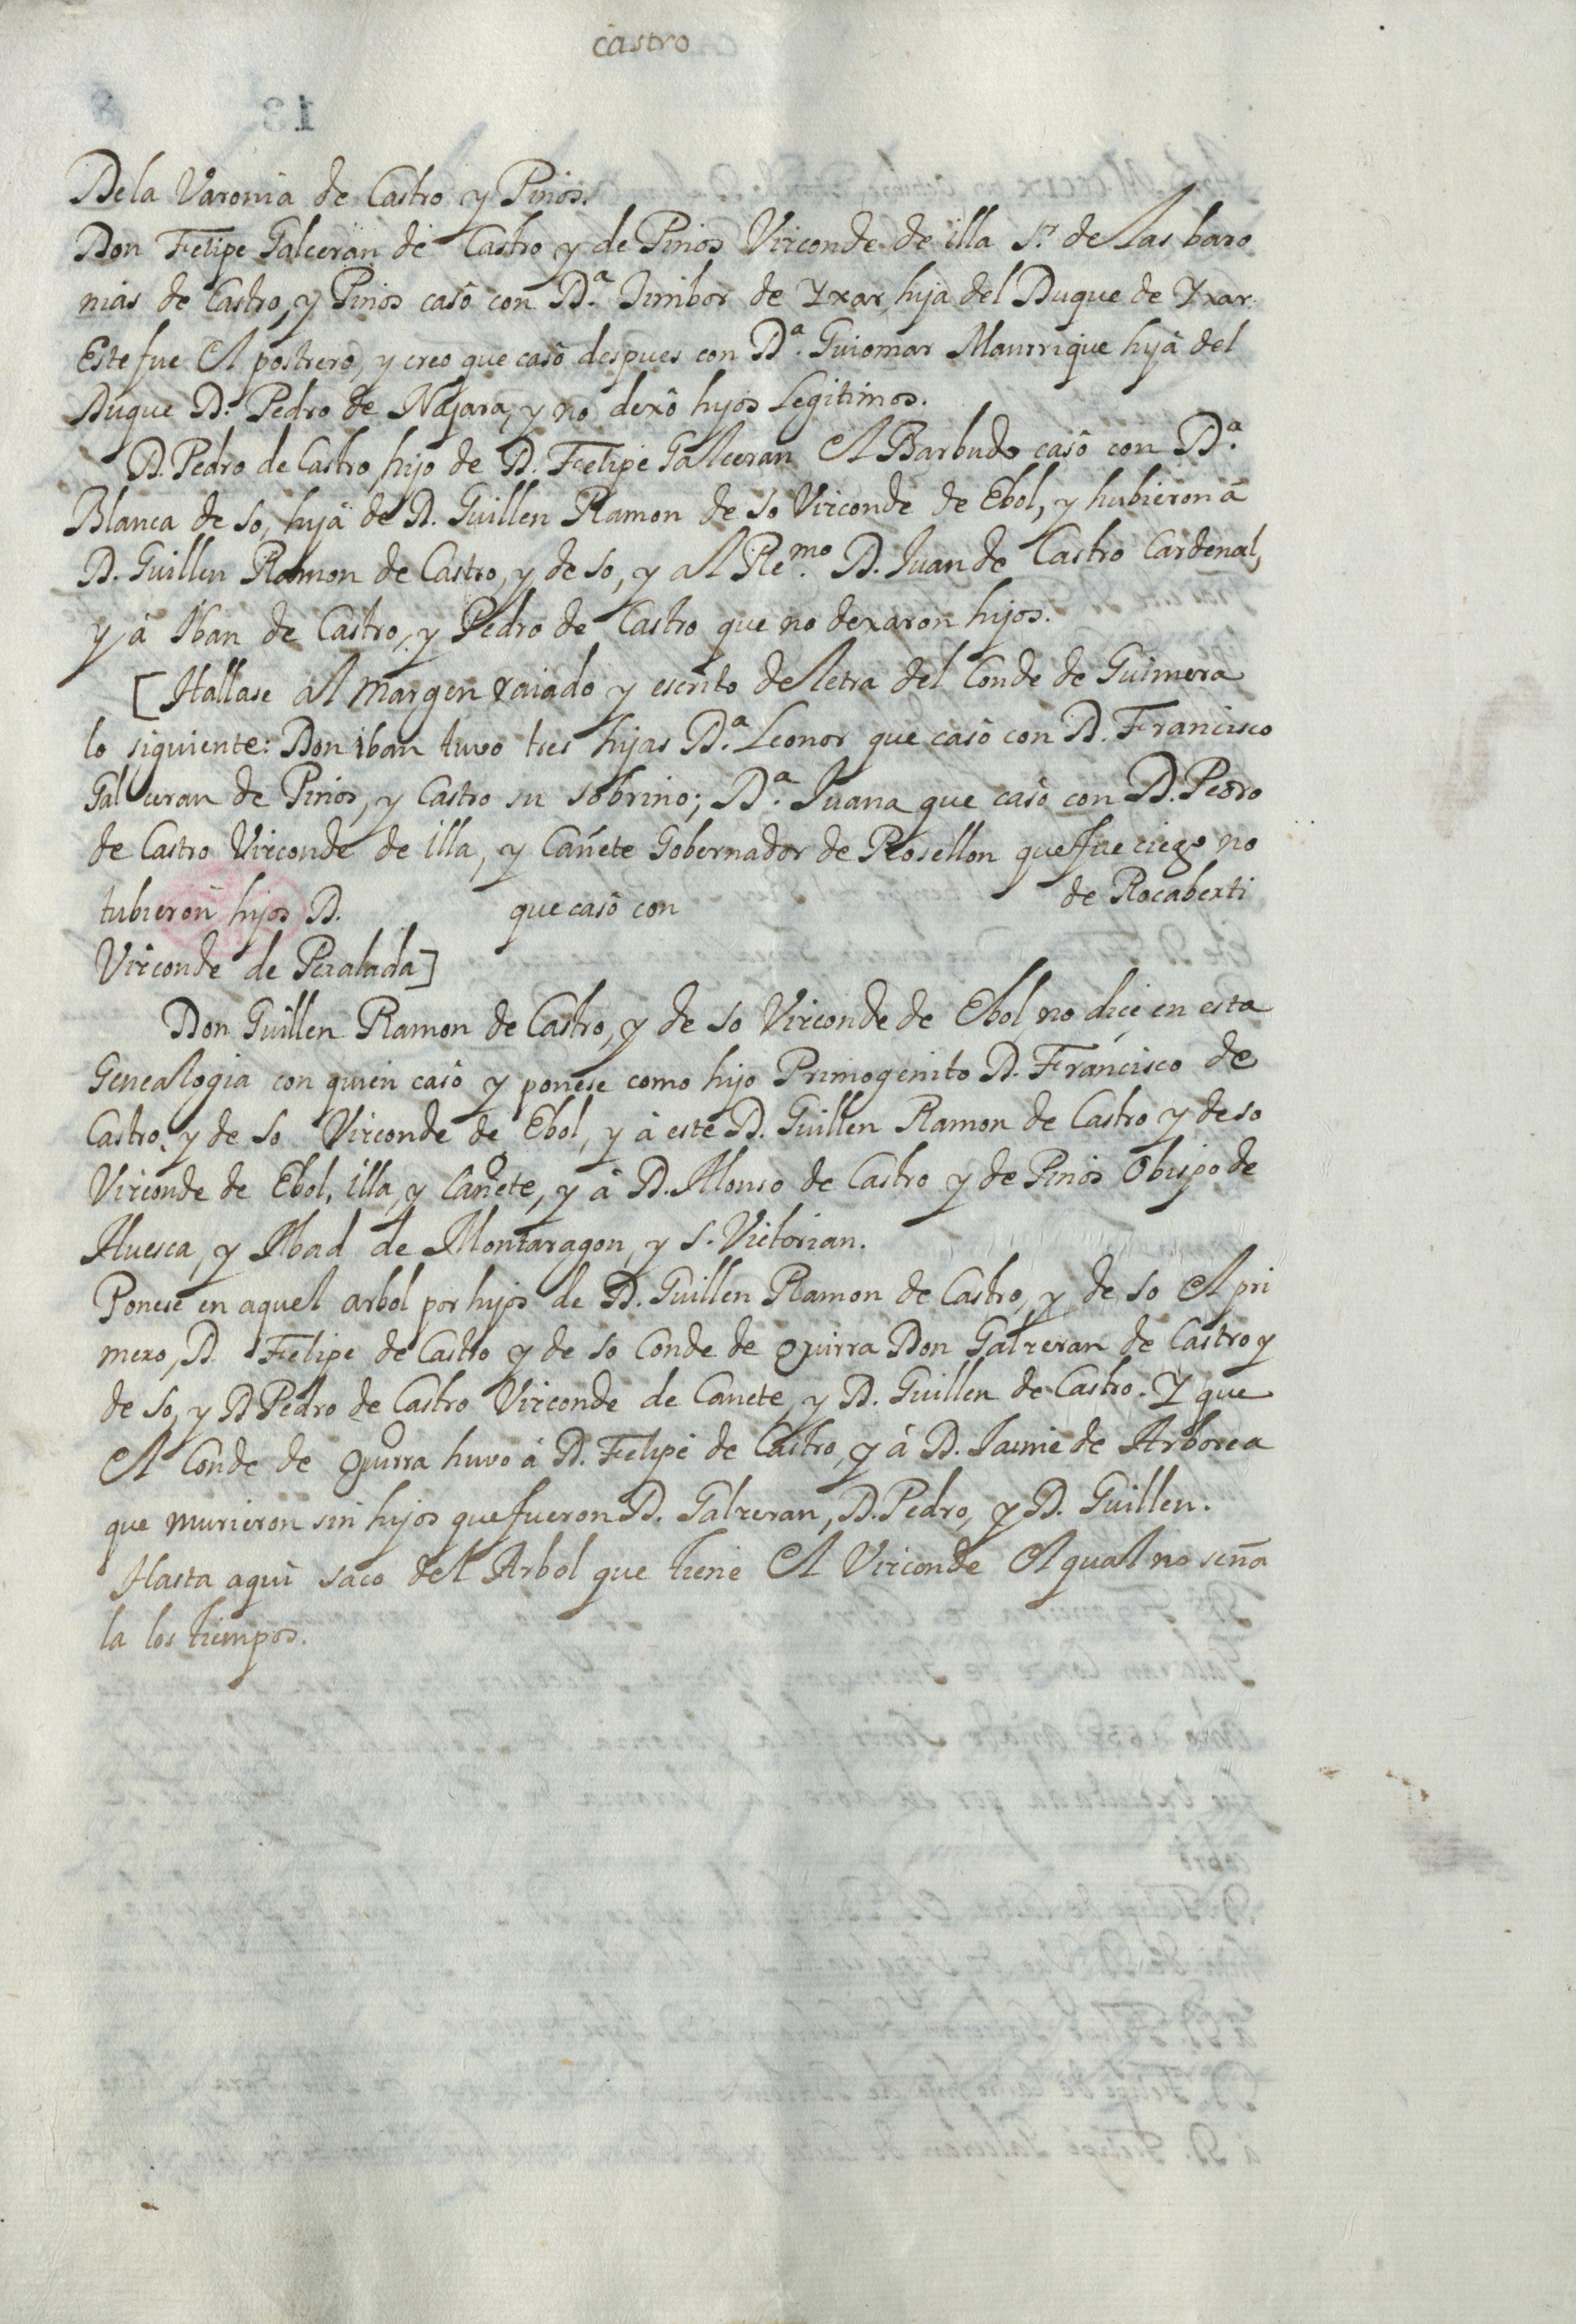 castro
Dela Varonia de Castro y Pinòs.
Don Felipe Galceran de Castro y de Pinòs Vizconde de illa S.r de las baro
nias de Castro, y Pinòs casò con D.ª Timbor de Yxar, hija del Duque de Yxar.
Este fue el postrero, y creo que casò despues con D.ª Guiomar Manrrique hija del
Duque D. Pedro de Nàjara, y no dexô hijos Legitimos.
D. Pedro de Castro, hijo de D. Felipe Galceran el Barbudo casô con D.ª
Blanca de So, hija de D. Guillen Ramon de So Vizconde de Ebol, y hubieron â
D. Guillen Ramon de Castro, y de So, y al Re.mo D. Juan de Castro Cardenal,
y â Iban de Castro, y Pedro de Castro que no dexaron hijos.
[Hallase al margen raiado y escrito de letra del Conde de Guimera
lo siguiente: Don iban tuvo tres hijas D.ª Leonor que casô con D. Francisco
Galceran de Pinòs, y Castro su sobrino; D.ª Juana que casô con D. Pedro
de Castro Vizconde de illa, y Cañete Gobernador de Rosellon que fue ciego no
tubieron hijos D. que casô con de Rocaberti
Vizconde de Peralada]
Don Guillen Ramon de Castro, y de So Vizconde de Ebol no dice en esta
Genealogia con quien casô y ponese como hijo Primogenito D. Francisco de
Castro, y de So Vizconde de Ebol, y à este D. Guillen Ramon de Castro y de so
Vizconde de Ebol, illa, y Cañete, y â D. Alonso de Castro y de Pinòs Obispo de
Huesca, y Abad de Montaragon, y S. Victorian.
Ponese en aquel arbol por hijos de D. Guillen Ramon de Castro, y de So el pri
mero, D. Felipe de Castro y de So Conde de Quirra Don Galzeran de Castro y
de So, y D Pedro de Castro Vizconde de Canete, y D. Guillen de Castro. Y que
el Conde de Quirra huvo â D. Felipe de Castro, y â D. Jaime de Arborea
que murieron sin hijos que fueron D. Galzeran, D. Pedro, y D. Guillen.
Hasta aqui saco del Arbol que tiene el Vizconde el qual no seña
la los tiempos.